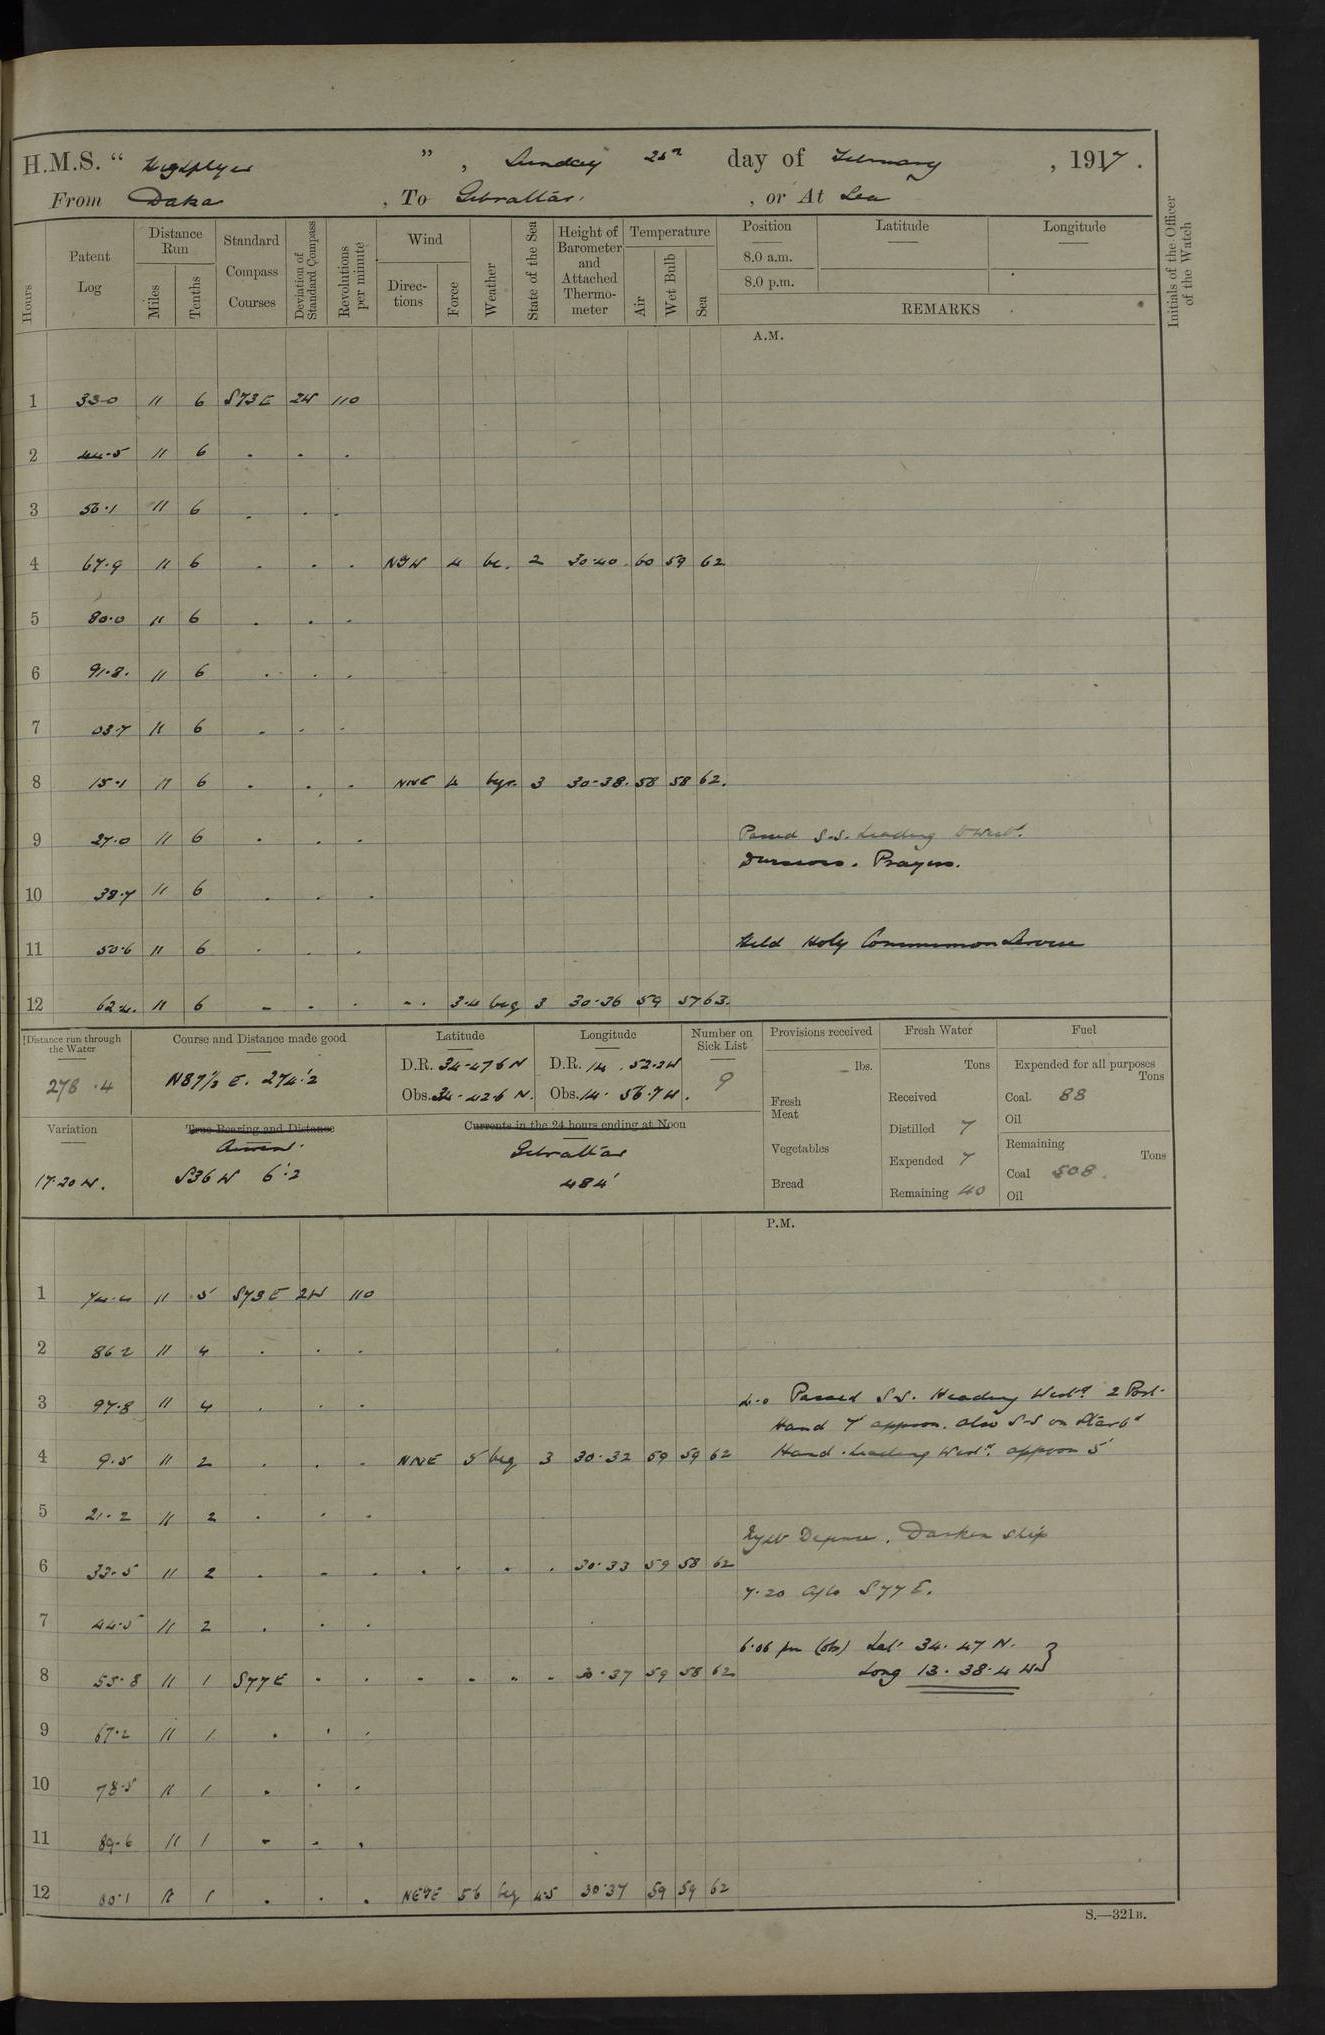 H.M.S. “ Highflyer ” , Sunday 25th day of February , 1917 .
From Dakar , To Gibraltar , or At Sea
Hours
Patent Log
Distance Run
Miles
Tenths
Standard Compass Courses
Deviation of Standard Compass
Revolutions per minute
Wind
Directions
Force
Weather
State of the Sea
Height of Barometer and Attached Thermometer
Temperature
Air
Wet Bulb
Sea
Position
8.0 a.m.
8.0 p.m.
Latitude
Longitude
REMARKS
Initials of the Officer of the Watch
A.M.
1 33·0 11 6 S73E 2W 110
2 44·5 11 6 . . .
3 56·1 11 6 . . .
4 67·9 11 6 . . . NbW 4 bc. 2 30·40 60 59 62
5 80·0 11 6 . . .
6 91·8. 11 6 . . .
7 03·7 11 6 . . .
8 15·1 11 6 . . . NNE 4 3 30·38. 58 58 62.
9 27·0 11 6 . . . Passed S.S. heading
Divisions. Prayers.
10 38·7 11 6 . . .
11 50·6 11 6 . . . Held Holy Communion Service
12 62·4. 11 6 - - . - . 3·4 bcg 3 30·36 59 57 63.
Distance run through the Water
278·4
Course and Distance made good
N87½ E. 274'·2
Latitude
D.R. 34·47·6 N
Obs. 34·42·6 N.
Longitude
D.R. 14·52·2W
Obs. 14·56·7W.
Number on Sick List
9
Provisions received
lbs.
Fresh Meat
Vegetables
Bread
Fresh Water
Tons
Received
Distilled 7
Expended 7
Remaining 40
Fuel
Expended for all purposes
Tons
Coal. 88
Oil
Remaining
Tons
Coal 508.
Oil
Variation
17·20 W.
True Bearing and Distance
Current.
S36W 6'·2
Currents in the 24 hours ending at Noon
Gibraltar
484'
P.M.
1 74·4 11 5 S73E 2W 110
2 86·2 11 4 . . .
3 97·8 11 4 . . . 4·0 Passed S.S. Heading Westd 2 Port
Hand 7' approx. also S.S on Starbd
4 9·5 11 2 . . . NNE 5 bcg 3 30·32 59 59 62 Hand. heading Westd. approx 5'
5 21·2 11 2 . . .
Night Defence. Darken Ship
6 33·5 11 2 . - . . . . . 30·33 59 58 62
7·20 A/Co S77E.
7 44·5 11 2 . . .
6·06 pm (obs) Lat. 34·47 N.
8 55·8 11 1 S77E . . . . . . 30·37 59 58 62 Long 13·38·4 W
9 67·2 11 1 . . .
10 78·5 11 1 . . .
11 89·6 11 1 . . .
12 00·1 11 1 . . . NEbE 5 6 bcg 4·5 30·37 59 59 62
S.—321B.